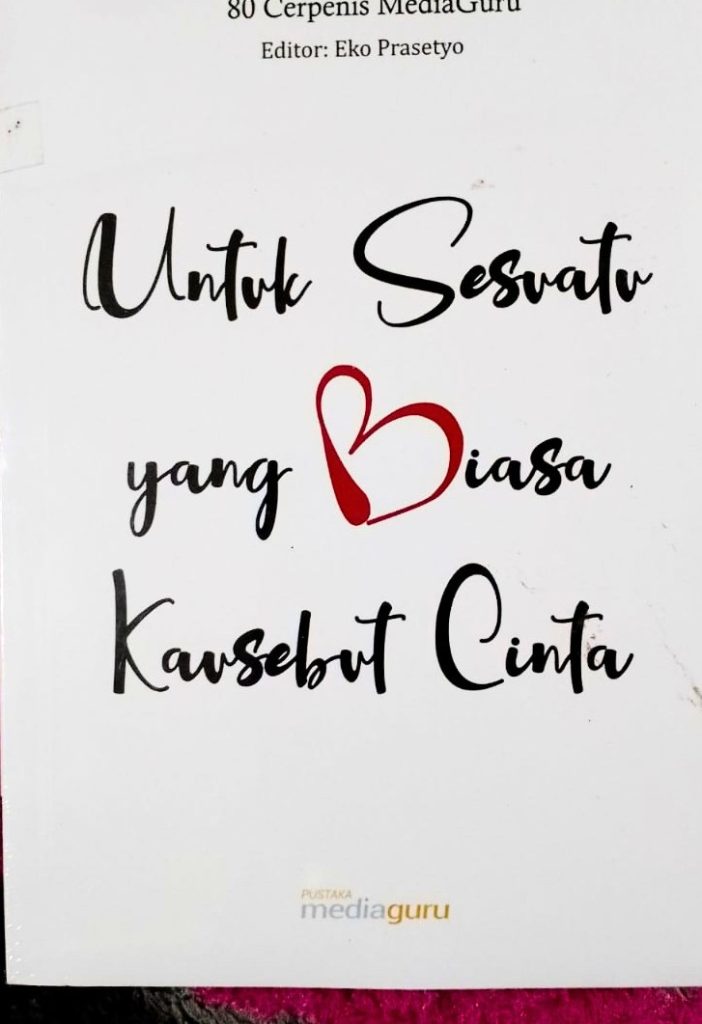 80 Cerpenis MediaGuru
Editor: Eko Prasetyo
Untuk Sesuatu
yang Biasa
Kausebut Cinta
PUSTAKA
mediaguru